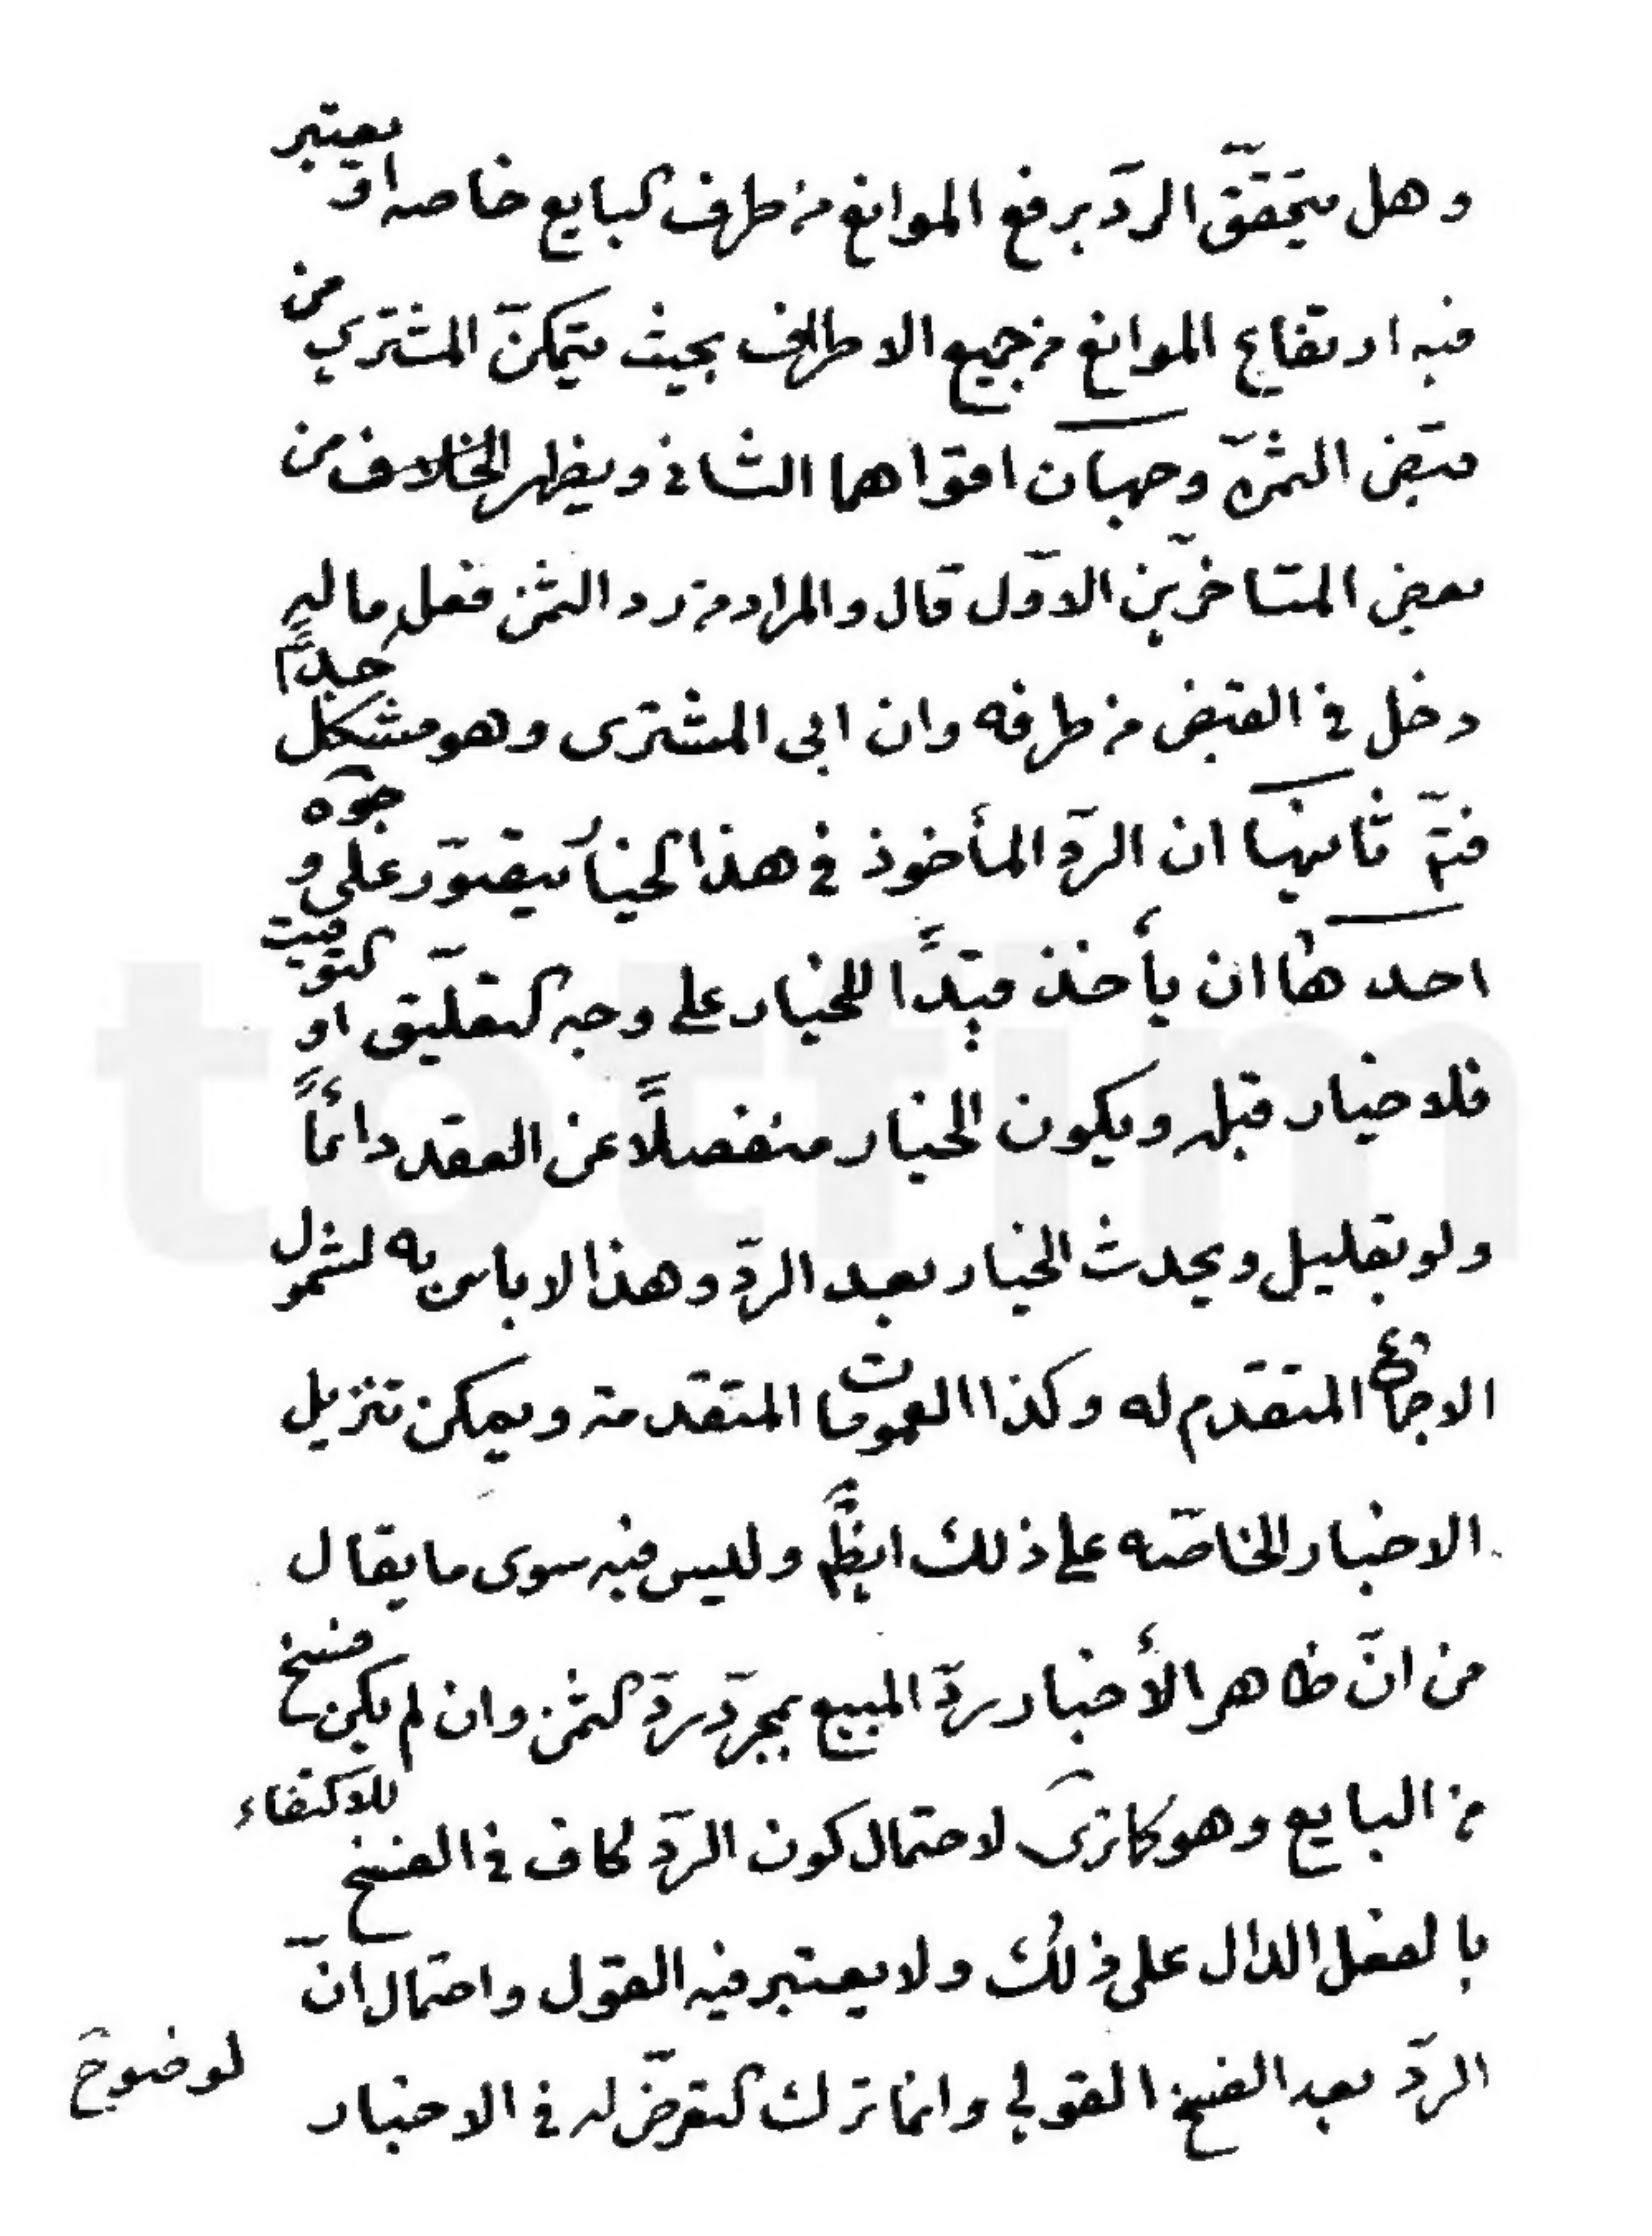 وهل يتحقّق الردّ برفع الموانع من طرف البايع خاصه او يعتبر
فيه ارتفاع الموانع من جميع الاطراف بحيث يتمكنّ المشتري من
قبض الثمرة وجهان اقواهما الثاني ويظهر الخلاف من
بعض المتاخرّين الاوّل قال والمراد من رد الثمن فعل ما له
دخل في القبض من طرفه وان ابى المشترى وهو مشكل جداً
فتمّ ثانيها ان الردّ المأخوذ في هذا الخيار يتصوّر على وجوه
احدها ان يأخذ مبتدأً للخيار على وجه التعليق او التوقيت
فلا خيار قبله ويكون الخيار منفصلاً عن العقد دائماً
ولو بقليل ويحدث الخيار بعد الردّ وهذا لا باس به لشمول
الاجماع المتقدم له وكذا العمومات المتقدمة ويمكن تنزيل
الاخبار الخاصّه على ذلك ايضاً وليس فيه سوى ما يقال
من انّ ظاهر الأخبار ردّ المبيع بمجرّد ردّ الثمن وان لم يكن فسخ
من البايع وهو كما ترى لاحتمال كون الردّ كاف في الفسخ للاكتفاء
بالفعل الدال على ذلك ولا يعتبر فيه القول واحتمال انّ
الردّ بعد الفسخ القولي وانما ترك التعرّض له في الاخبار
لوضوح